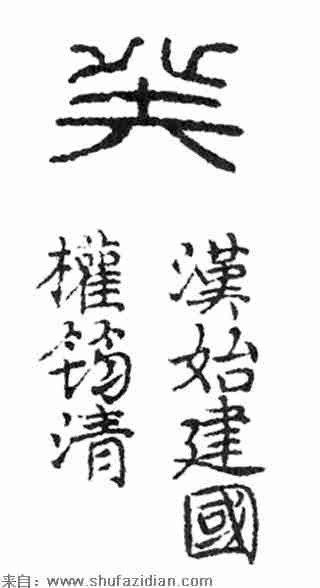 癸
漢始建國
權筠清
来自：www.shufazidian.com